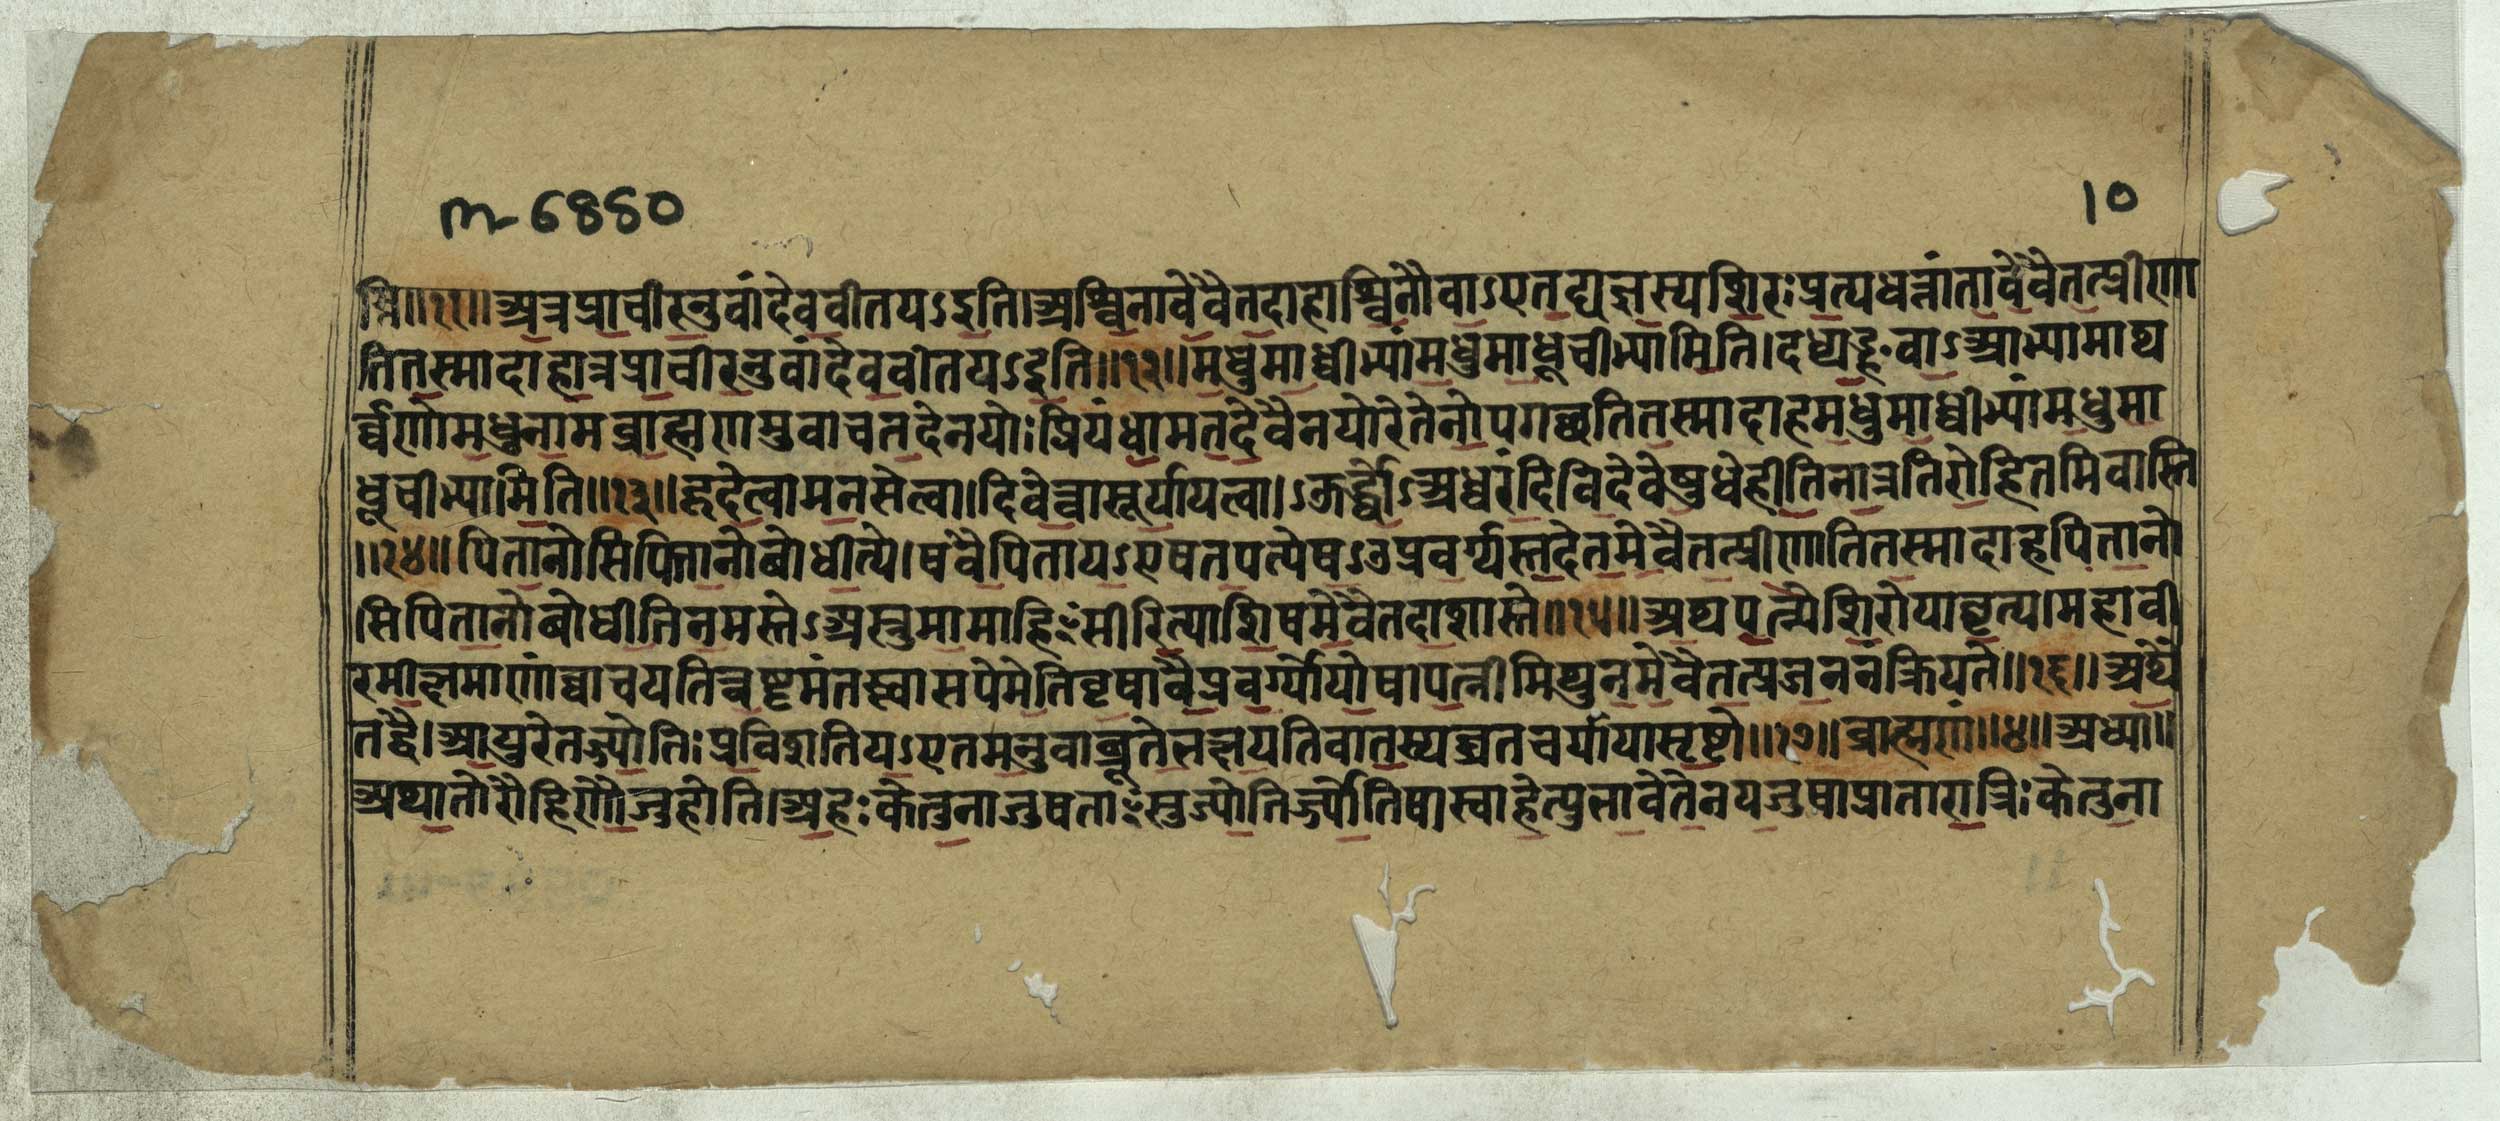 m-6880
10
न्नि॥११॥अत्रप्रावीरनुवांदेववीतयऽइति।अश्विनावेवैतदाहाश्विनौवाऽएतद्यज्ञस्यशिरःप्रत्यधत्तांतावेवैतत्प्रीणा
तितस्मादाहात्रप्रावीरनुवांदेववीतयऽइति॥१२॥मधुमाध्वीभ्यांमधुमाधूचीभ्यामिति।दध्यङ्हवाऽआभ्यामाथ
र्व्वणोमधुनामब्राह्मणमुवाचतदेनयोःप्रियंधामतदेवैनयोरेतेनोपगच्छतितस्मादाहमधुमाध्वीभ्यांमधुमा
धूचीभ्यामिति॥१३॥हृदेत्वामनसेत्वा।दिवेत्वासूर्यायत्वा।ऽऊर्द्ध्वोऽअध्वरंदिविदेवेषुधेहीतिनात्रतिरोहितमिवास्ति
॥१४॥पितानोसिपितानोबोधीत्ये।षवैपितायऽएषतपत्येषऽउप्रवर्ग्यस्तदेतमेवैतत्प्रीणातितस्मादाहपितानो
सिपितानोबोधीतिनमस्तेऽअस्तुमामाहिᳪसीरित्याशिषमेवैतदाशास्ते॥१५॥अथपत्न्यैशिरोपावृत्य।महावी
रमीक्षमाणांव्वाचयतित्वष्टृमंतस्त्वासपेमेतिवृषावैप्रवर्ग्योयोषापत्नीमिथुनमेवैतत्प्रजननंक्रियते॥१६॥अथै
तद्वै।आयुरेतज्ज्योतिःप्रविशतियऽएतमनुवाब्रूतेभक्षयतिवातस्यव्रतचर्यायासृष्टौ॥१७॥ब्राह्मणं॥४॥अध्या॥
अथातोरौहिणौजुहोति।अहःकेतुनाजुषताᳪसुज्योतिर्ज्योतिषास्वाहेत्युभावेतेनयजुषाप्रातारात्रिःकेतुना